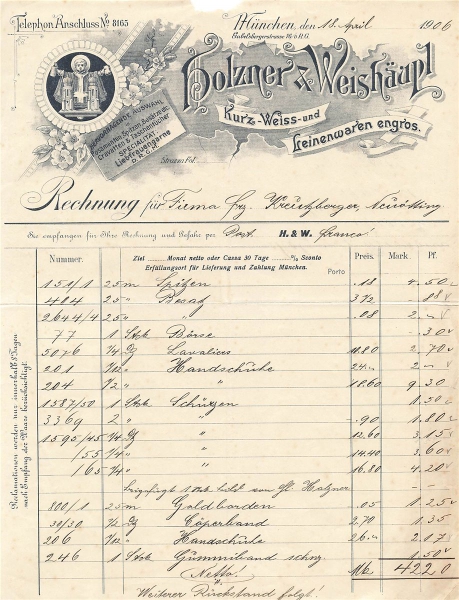 Telephon Anschluss No 8165
München, den 18. April 1906
Holzner & Weishäupl
Kurz-Weiss-und
Leinenwaren engros.
Rechnung für Firma Frz. Kreuzberger, Neuötting
Sie empfangen für Ihre Rechnung und Gefahr per Post H. & W. franco!
Nummer. Ziel Monat netto oder Cassa 30 Tage % Sconto Preis. Mark. Pf.
Erfüllungsort für Lieferung und Zahlung München. Porto
Reklamationen werden nur innerhalb 8 Tagen
nach Empfang der Waare berücksichtigt.
151/1 25 m Spitzen .18 4.50
484 25 " Besatz
2644/4 25 " " .08 2.-
77 1 Stck Börse -.30
5076 1/4 Lavaliers 10.80 2.70
201 1/12 " Handschuhe 24.- 2.-
204 1/2 " " 18.60 9.30
1587/50 1 Stck Schürzen 1.50
3369 2 " " -.90 1.80
1595/45 1/4 " 12.60 3.15
155 1/4 " 14.40 3.60
165 1/4 " 16.80 4.20
800/1 25 m Goldborden .05 1.25
30/30 1/2 Cöperband 2.70 1.35
206 1/12 " Handschuhe 26.- 2.17
246 1 Stck Gummiband schw. 1.50
Netto! M 42 20
Weiterer Rückstand folgt!